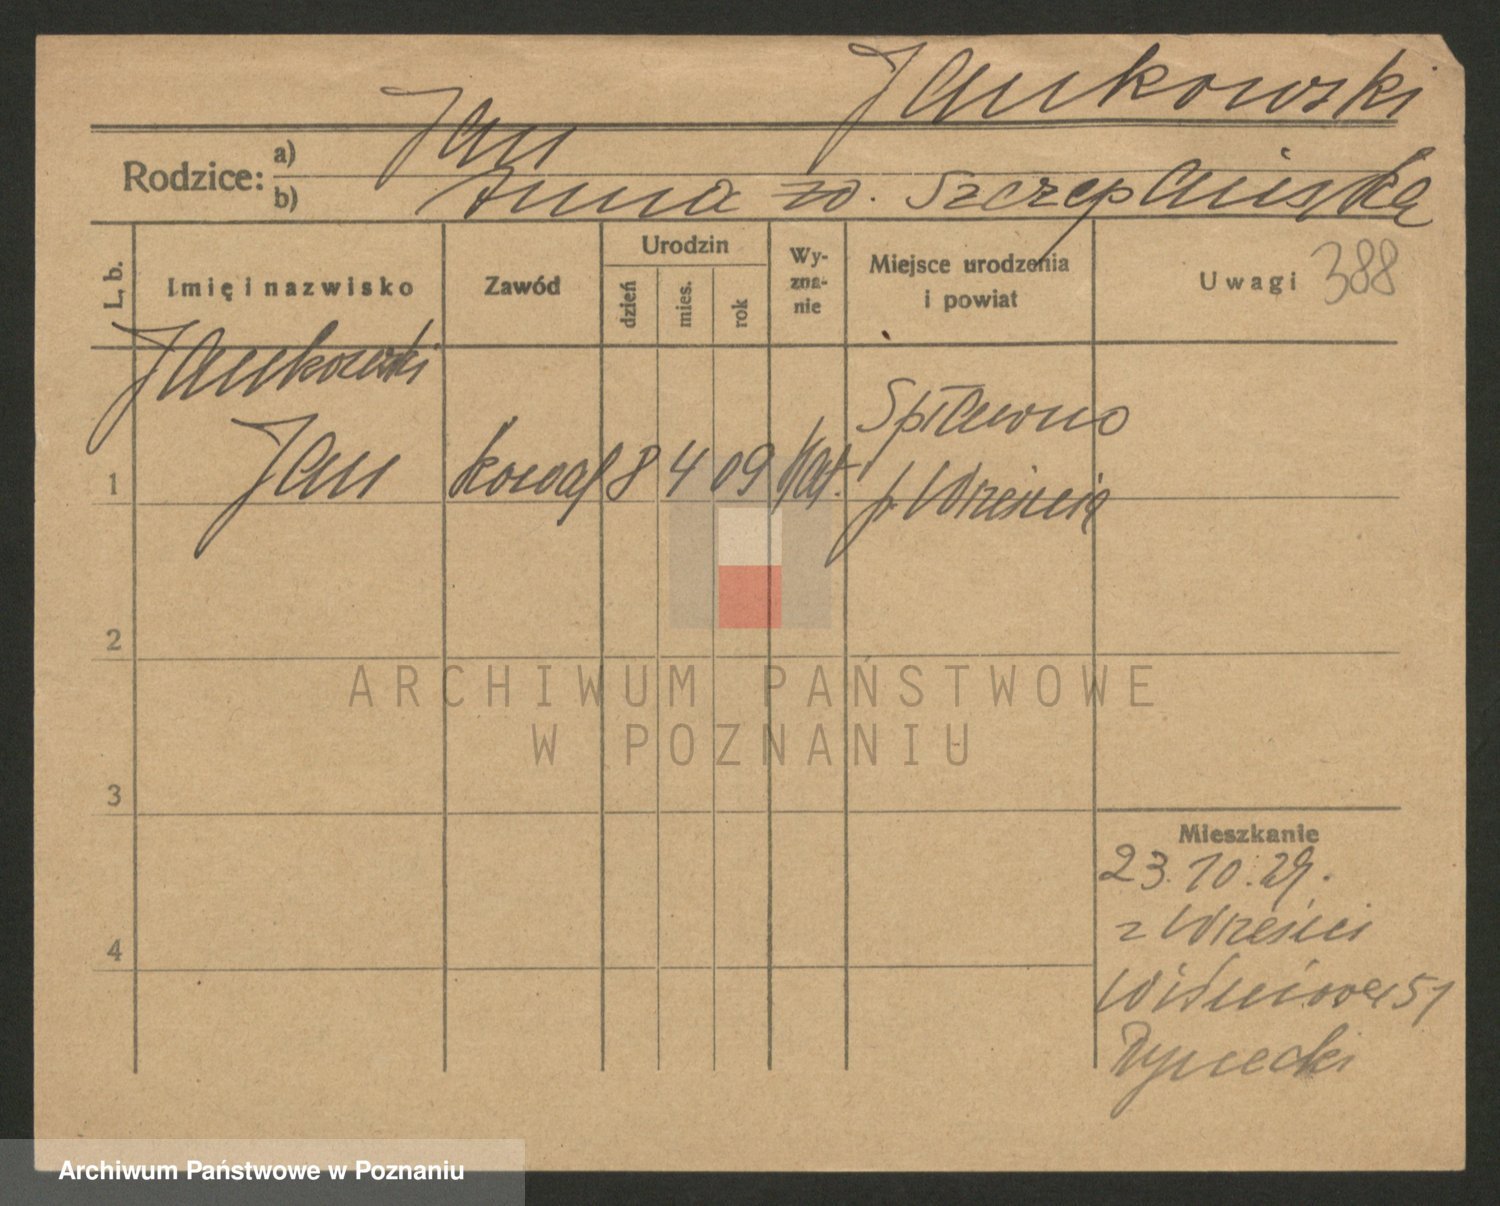 Jankowski
Rodzice: a) Jan
b) Anna zd. Szczepańska
L. b. Imię i nazwisko Zawód Urodzin dzień mies. rok Wyznanie Miejsce urodzenia i powiat Uwagi 388
Jankowski
1 Jan kowal 8 4 09 kat. Spławno
p. Września
2
3
4
Mieszkanie
23.10.29.
z Wrześni
Wiśniowa 51
Rynecki
ARCHIWUM PAŃSTWOWE
W POZNANIU
Archiwum Państwowe w Poznaniu